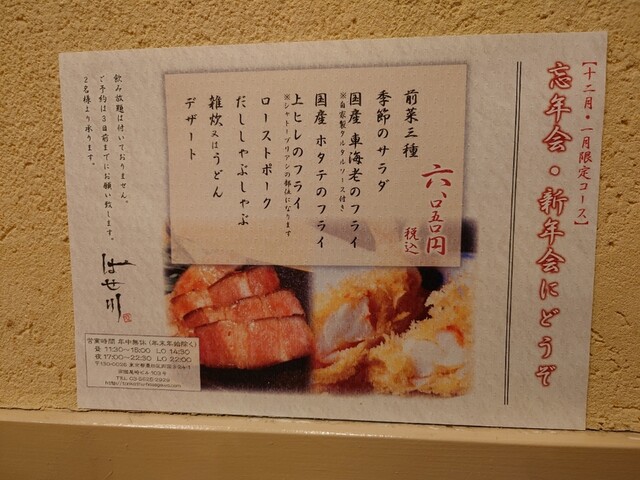 【十二月・一月限定コース】
忘年会・新年会にどうぞ
六、〇五〇円
税込
前菜三種
季節のサラダ
国産 車海老のフライ
※自家製タルタルソース付き
国産 ホタテのフライ
上ヒレのフライ
※シャトーブリアンの部位になります
ローストポーク
だししゃぶしゃぶ
雑炊又はうどん
デザート
飲み放題は付いておりません。
ご予約は3日前までにお願い致します。
2名様より承ります。
はせ川
営業時間 年中無休(年末年始除く)
昼 11:30~15:00 LO 14:30
夜 17:00~22:30 LO 22:00